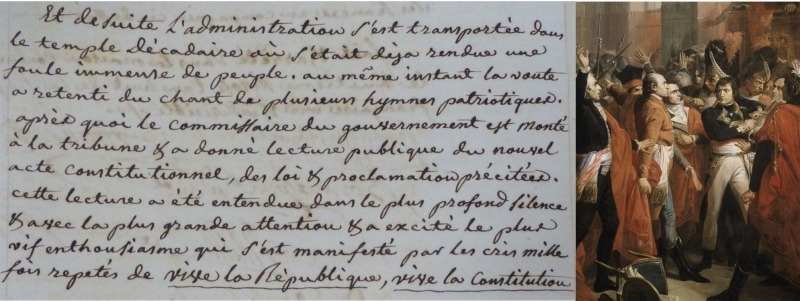 Et desuite L'administration s'est transportée dans
le temple décadaire où s'était déja rendue une
foule immense de peuple. au même instant la voute
a retenti du chant de plusieurs hymnes patriotiques.
après quoi le commissaire du gouvernement est monté
à la tribune & a donné lecture publique du nouvel
acte constitutionnel, des loi & proclamation précitées.
cette lecture a été entendue dans le plus profond silence
& avec la plus grande attention & a excité le plus
vif enthousiasme qui s'est manifesté par les cris mille
fois repetés de vive la République, vive la Constitution